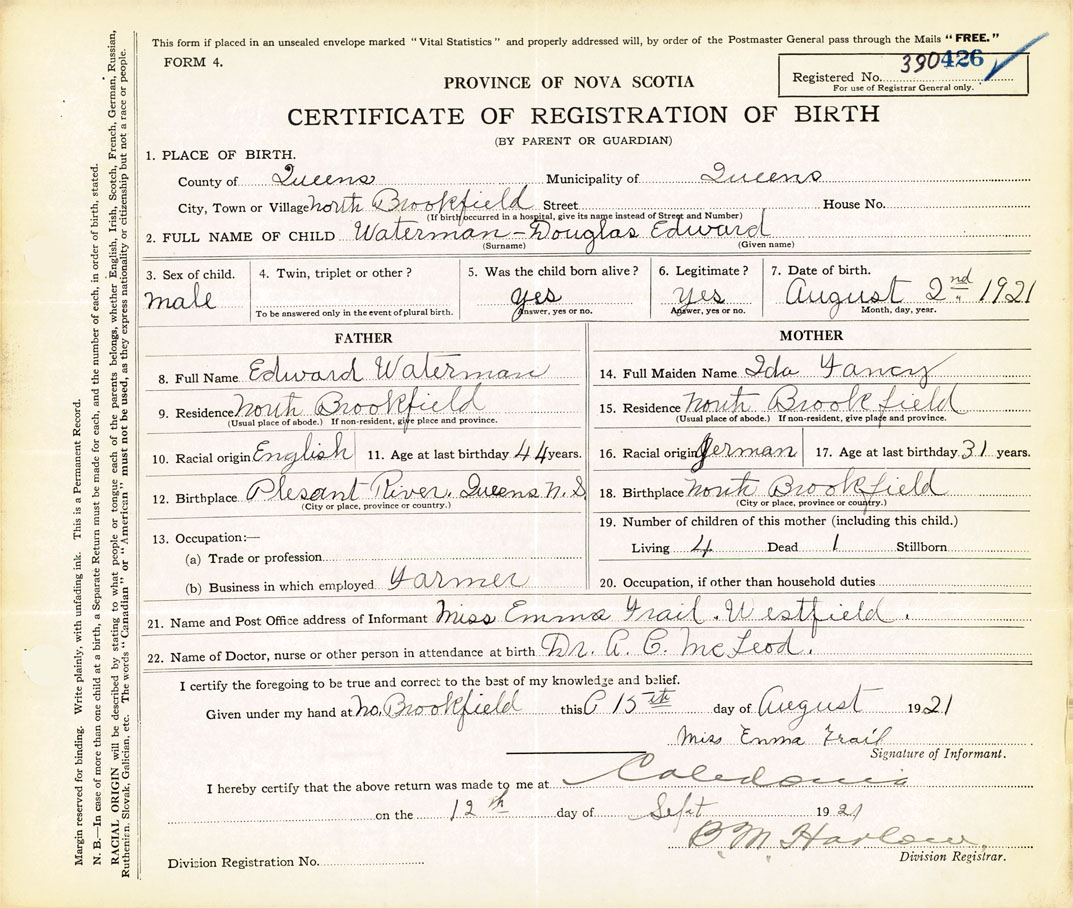 This form if placed in an unsealed envelope marked "Vital Statistics" and properly addressed will, by order of the Postmaster General pass through the Mails "FREE."
FORM 4.
390426
Registered No.
For use of Registrar General only.
PROVINCE OF NOVA SCOTIA
CERTIFICATE OF REGISTRATION OF BIRTH
(BY PARENT OR GUARDIAN)
1. PLACE OF BIRTH.
County of Queens Municipality of Queens
City, Town or Village North Brookfield Street House No.
(If birth occurred in a hospital, give its name instead of Street and Number)
2. FULL NAME OF CHILD Waterman - Douglas Edward
(Surname) (Given name)
3. Sex of child. male
4. Twin, triplet or other?
To be answered only in the event of plural birth.
5. Was the child born alive? yes
Answer, yes or no.
6. Legitimate? Yes
Answer, yes or no.
7. Date of birth. August 2nd 1921
Month, day, year.
FATHER
8. Full Name Edward Waterman
9. Residence North Brookfield
(Usual place of abode.) If non-resident, give place and province.
10. Racial origin English 11. Age at last birthday 44 years.
12. Birthplace Plesant River. Queens N.S.
(City or place, province or country.)
13. Occupation:—
(a) Trade or profession
(b) Business in which employed Farmer
MOTHER
14. Full Maiden Name Ida Fancy
15. Residence North Brookfield
(Usual place of abode.) If non-resident, give place and province.
16. Racial origin German 17. Age at last birthday 31 years.
18. Birthplace North Brookfield
(City or place, province or country.)
19. Number of children of this mother (including this child.)
Living 4 Dead 1 Stillborn
20. Occupation, if other than household duties
21. Name and Post Office address of Informant Miss Emma Frail. Westfield.
22. Name of Doctor, nurse or other person in attendance at birth Dr. A. C. McLeod.
I certify the foregoing to be true and correct to the best of my knowledge and belief.
Given under my hand at No. Brookfield this 15th day of August 1921
Miss Emma Frail
Signature of Informant.
I hereby certify that the above return was made to me at Caledonia
on the 12th day of Sept 1921
B. M. Harlow.
Division Registrar.
Division Registration No.
Margin reserved for binding. Write plainly, with unfading ink. This is a Permanent Record.
N. B.—In case of more than one child at a birth, a Separate Return must be made for each, and the number of each, in order of birth, stated.
RACIAL ORIGIN will be described by stating to what people or tongue each of the parents belongs, whether English, Irish, Scotch, French, German, Russian,
Ruthenian, Slovak, Galician, etc. The words "Canadian" or "American" must not be used, as they express nationality or citizenship but not a race or people.